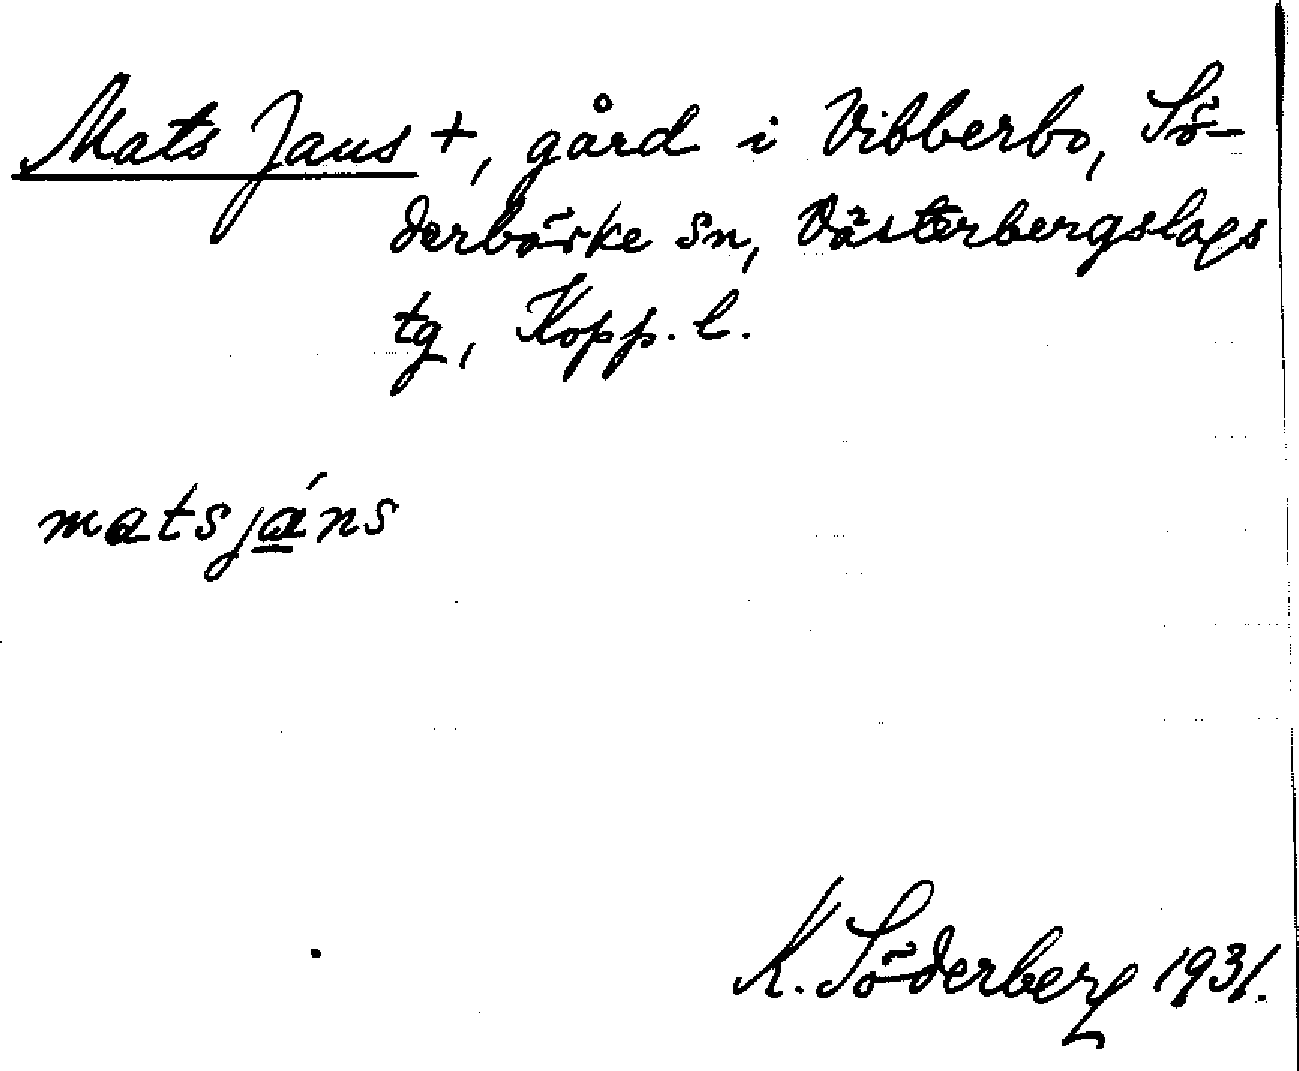 Mats Jans +, gård i Vibberbo, Sö-
derbärke sn, Västerbergslags
tg, Kopp. l.
matsjáns
K. Söderberg 1931.